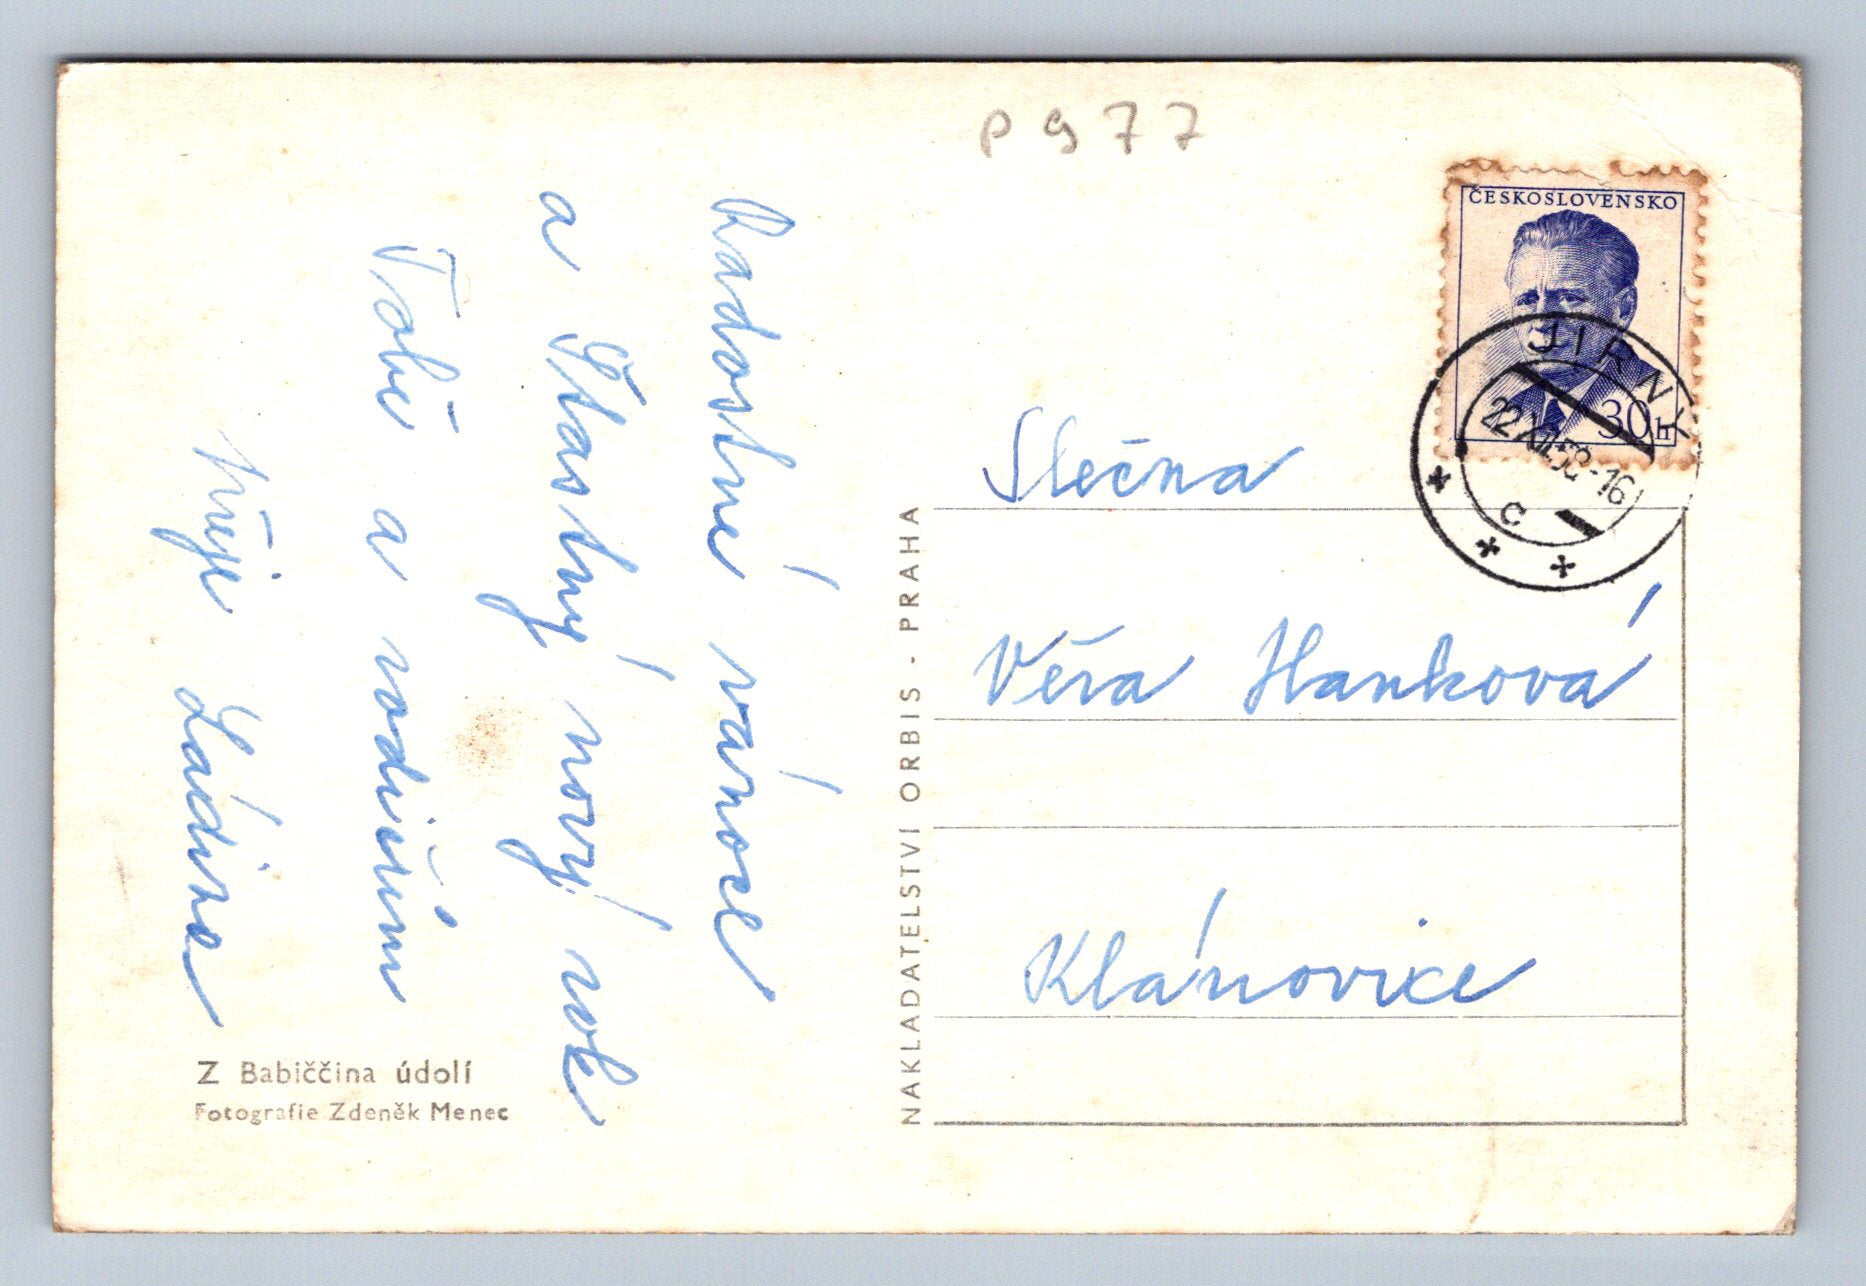 P 977
ČESKOSLOVENSKO
30h
JIRNY
22.XII.58-16
C
Radostné vánoce
a Šťastný nový rok
Tobě a rodičům
přeje Ládina
Z Babiččina údolí
Fotografie Zdeněk Menec
NAKLADATELSTVÍ ORBIS - PRAHA
Slečna
Věra Hanková
Klánovice